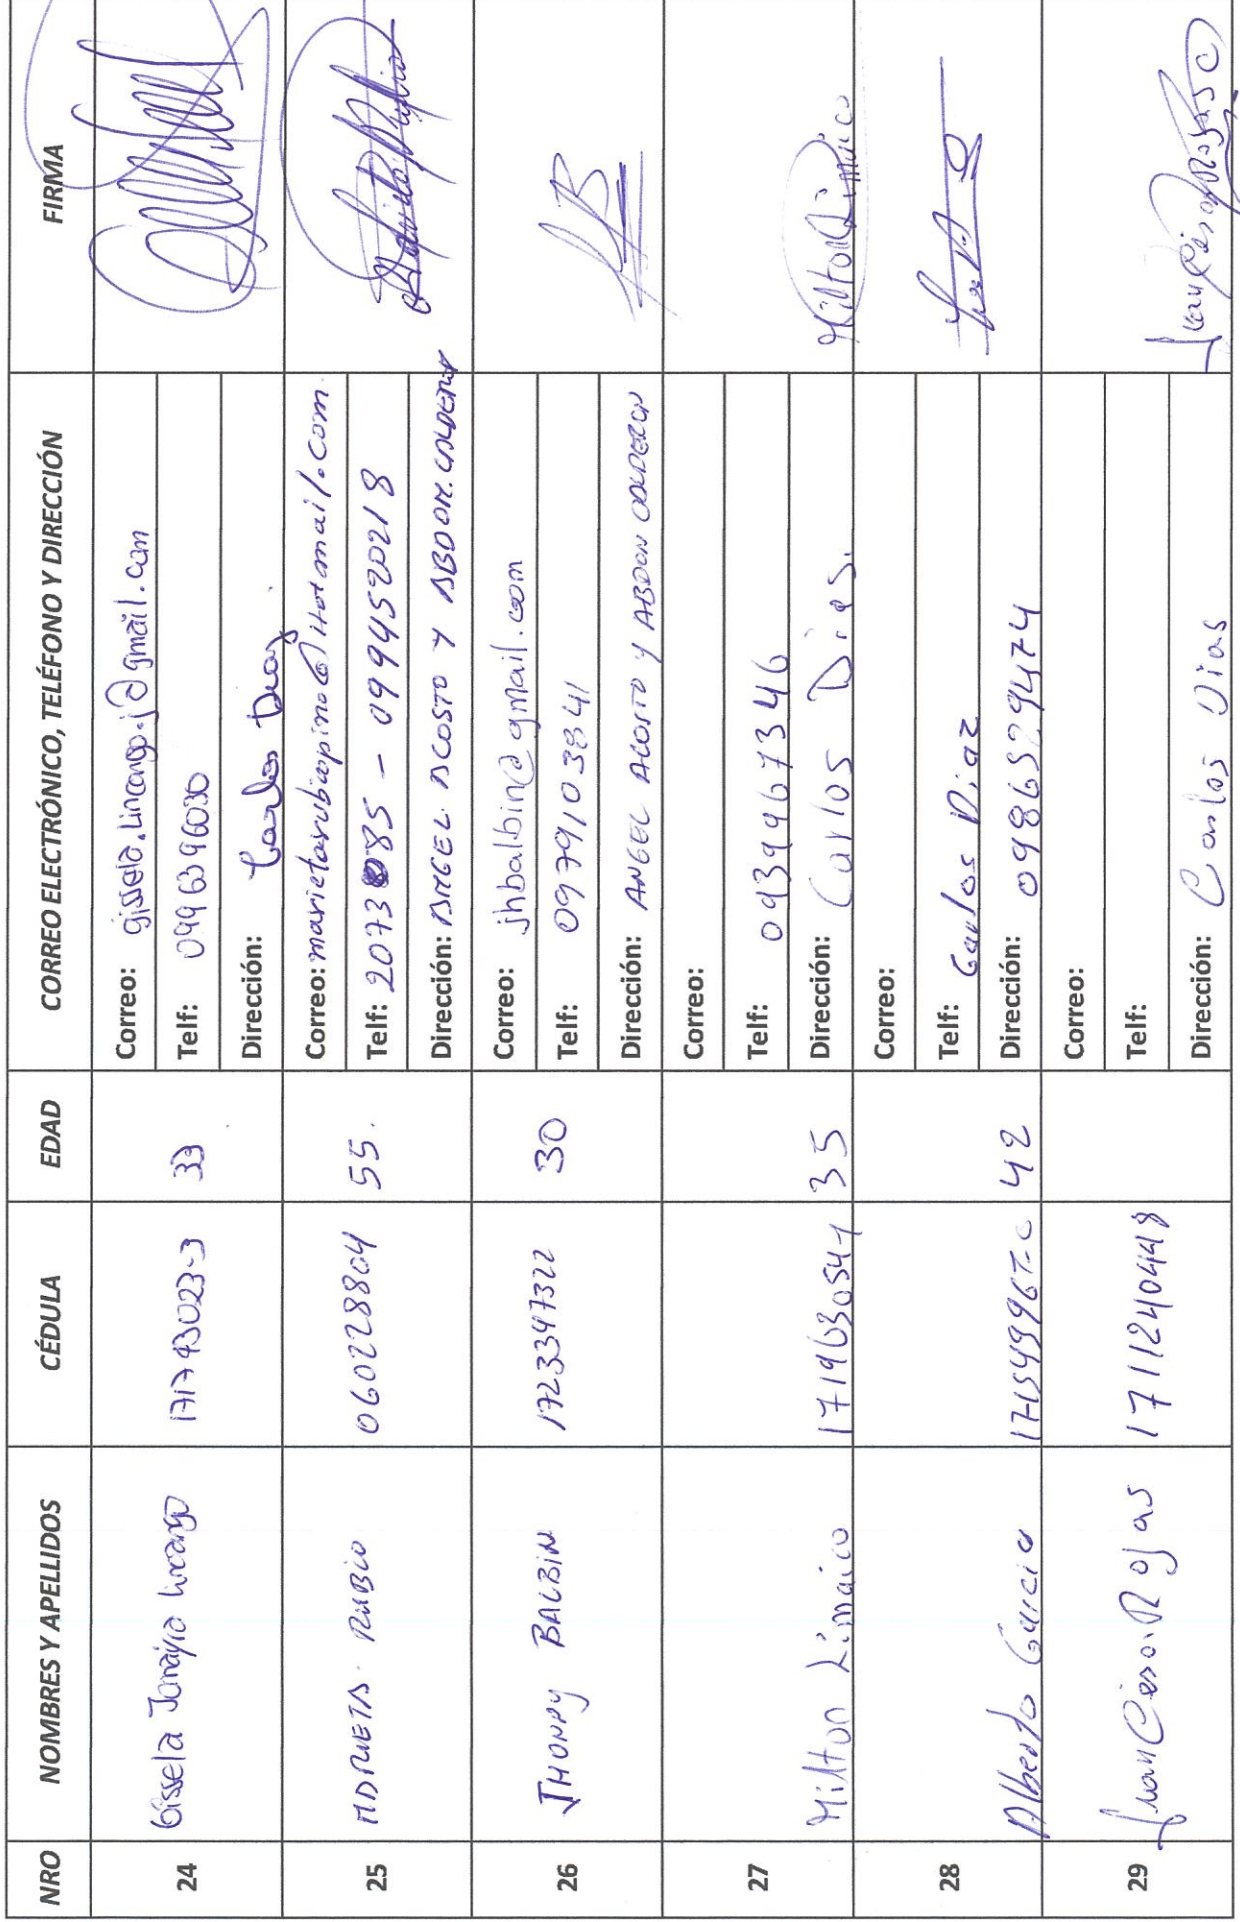 NRO NOMBRES Y APELLIDOS CÉDULA EDAD CORREO ELECTRÓNICO, TELÉFONO Y DIRECCIÓN FIRMA
24 Gissela Lincango 171793023-3 33
Correo: gissela.lincango.j@gmail.com
Telf: 0996396030
Dirección: Carlos Diaz
25 MARIETA RUBIO 0602288804 55.
Correo: marietarubiopino@Hotmail.com.
Telf: 2073085 - 0994520218
Dirección: ANGEL ACOSTO Y ABDON. CALDERON
26 JHONNY BALBIN 1723347322 30
Correo: jhbalbin@gmail.com
Telf: 0979103841
Dirección: ANGEL ACOSTO Y ABDON CALDERON
27 Milton Limaico 1719630547 35 Milton Limaico
Correo:
Telf: 0939967346
Dirección: Carlos Dias.
28 Alberto Garcia 42
Correo:
Telf: Carlos Diaz
Dirección: 0986529474
29 Juan Cesar Rojas 1711240448 Juan Cesar Rojas C
Correo:
Telf:
Dirección: Carlos Dias